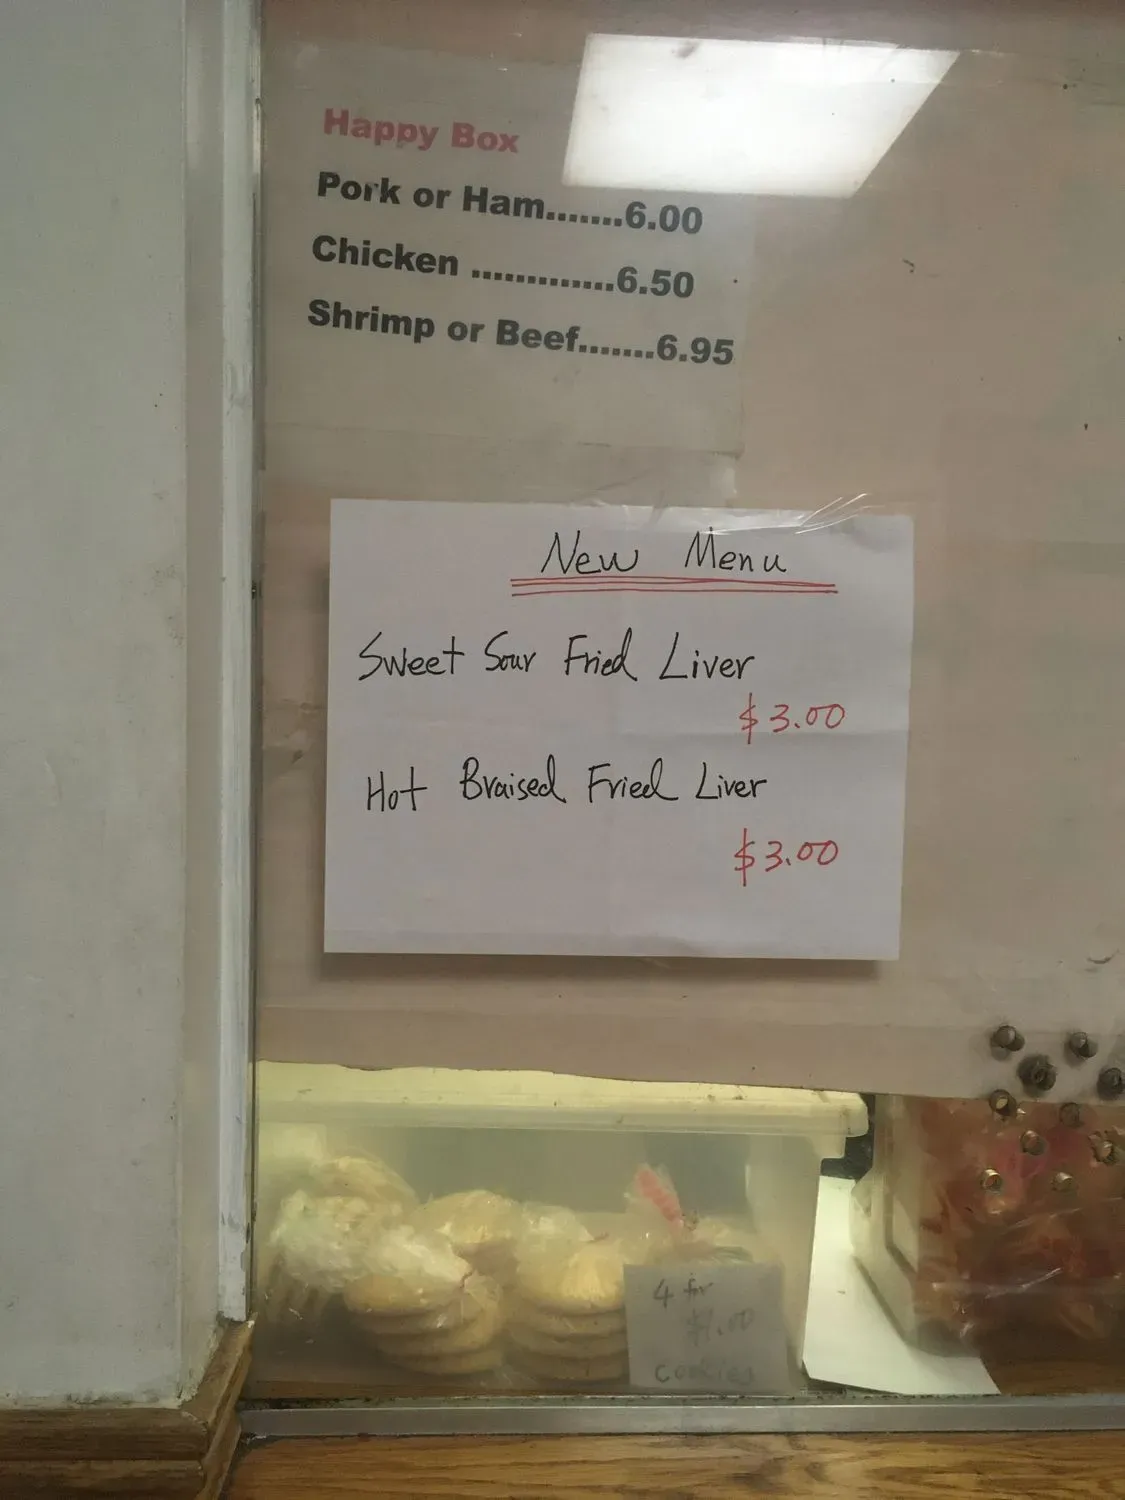 Happy Box
Pork or Ham.......6.00
Chicken .............6.50
Shrimp or Beef.......6.95
New Menu
Sweet Sour Fried Liver
$3.00
Hot Braised Fried Liver
$3.00
4 for
$1.00
cookies